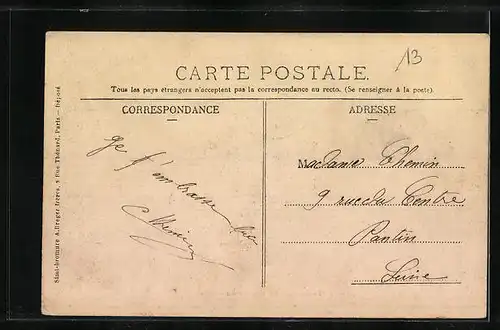 13
CARTE POSTALE
Tous les pays étrangers n'acceptent pas la correspondance au recto. (Se renseigner à la poste).
CORRESPONDANCE
ADRESSE
Je t'embrasse
Madame Chemin
9 rue du Centre
Pantin
Seine
Simi-bromure A. Breger frères, 9 Rue Thénard, Paris — Déposé